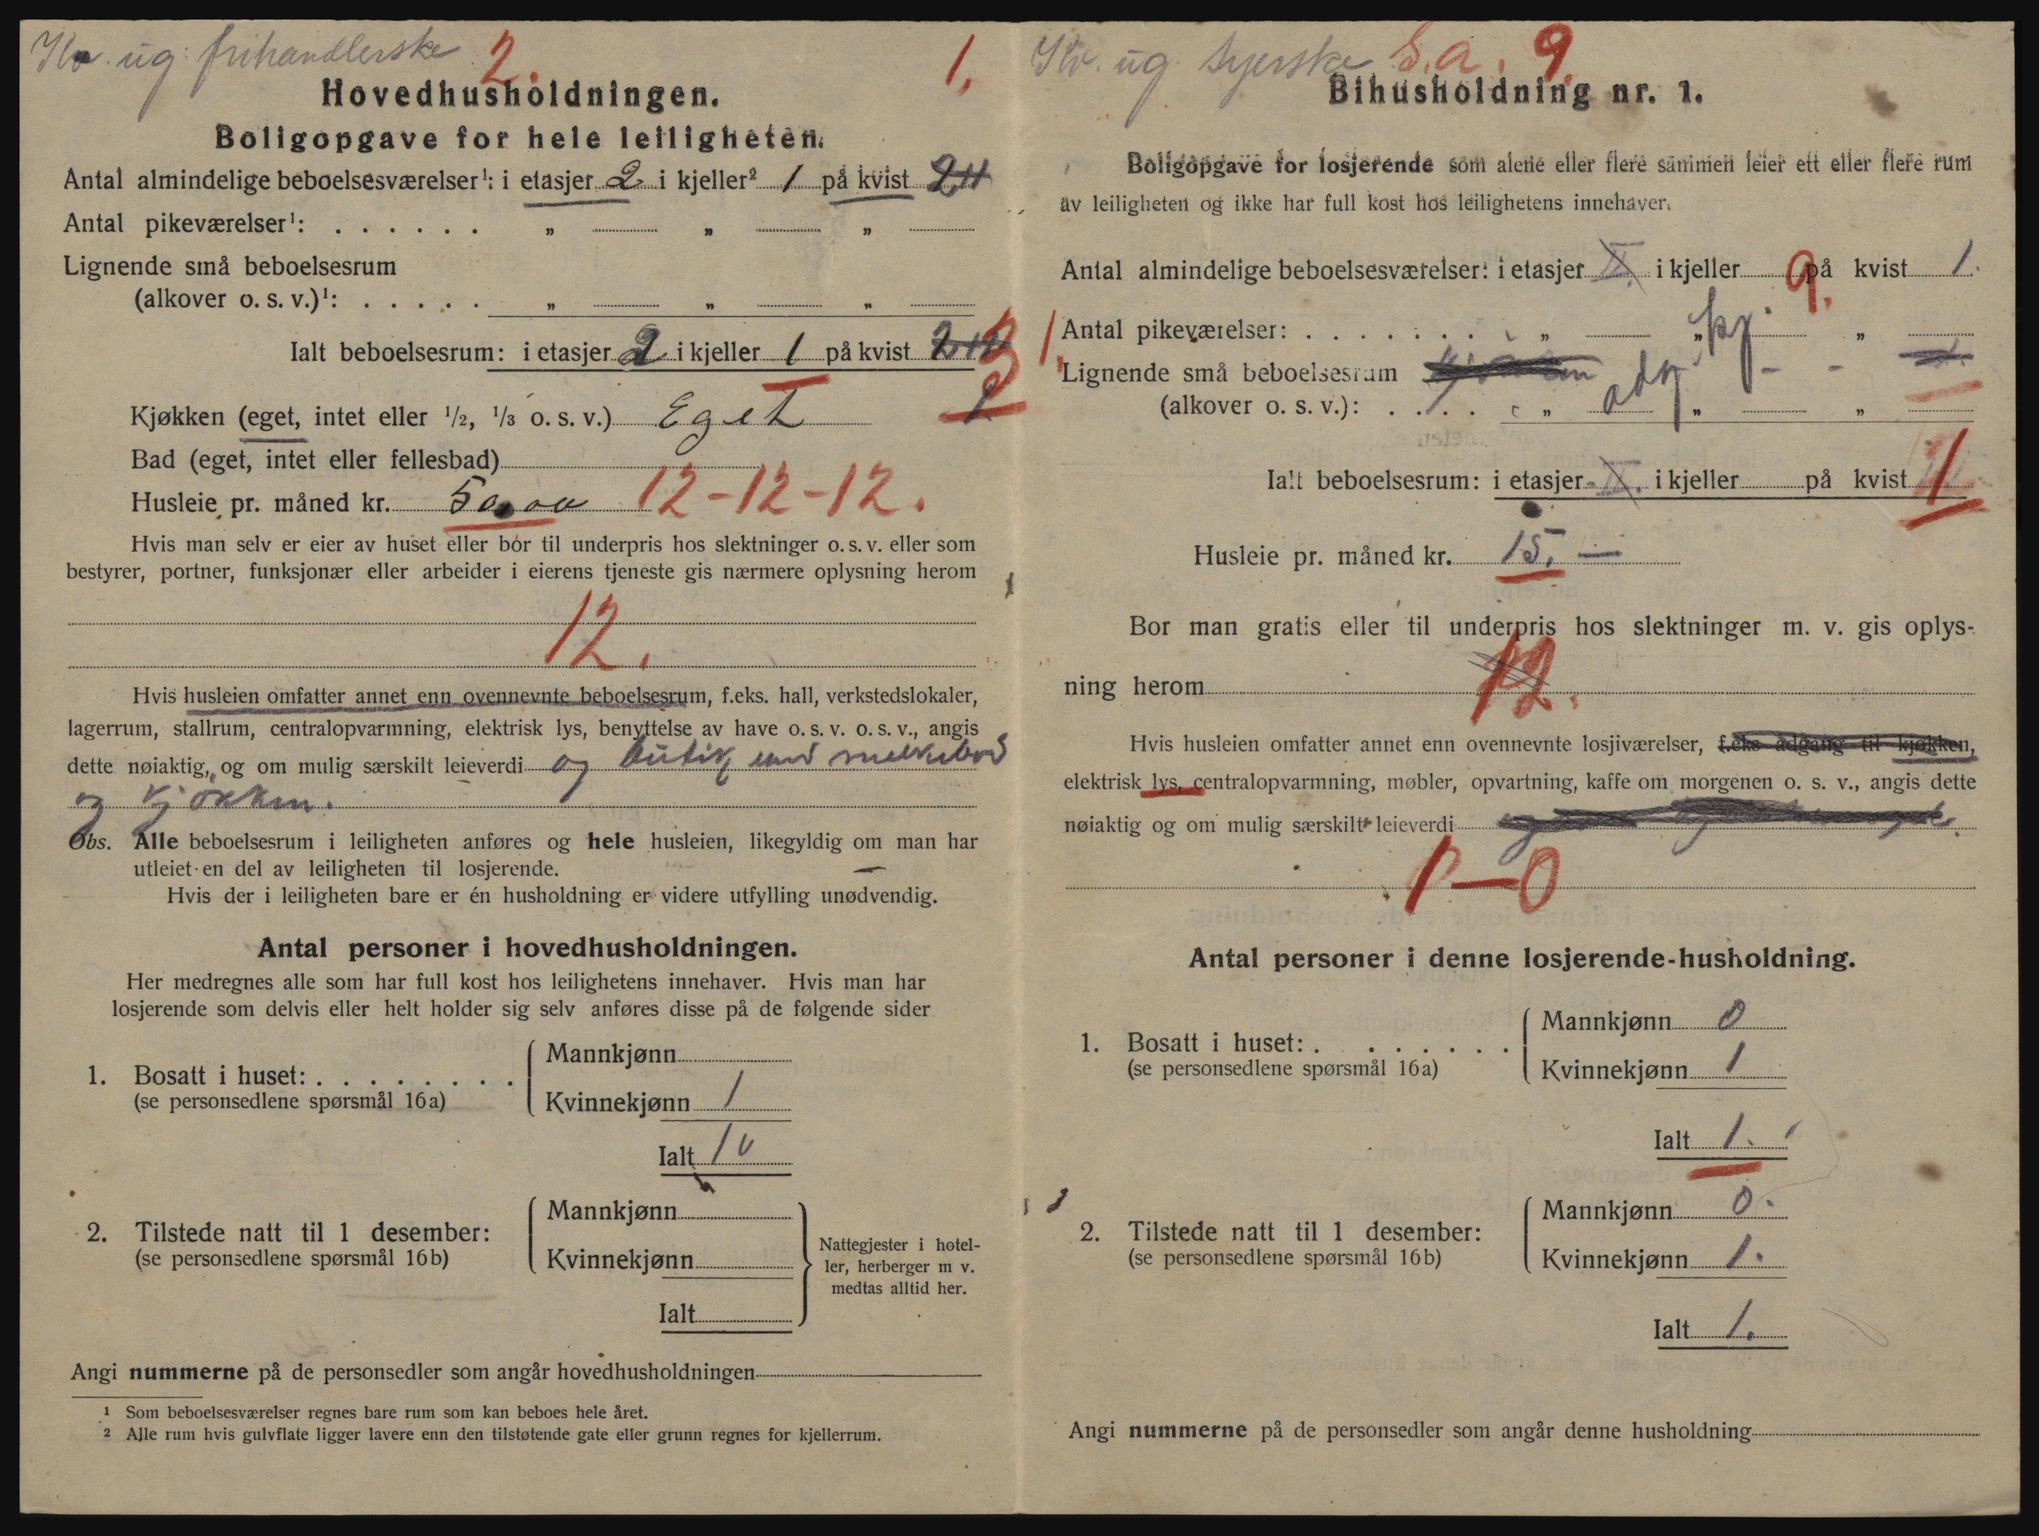 Kv. ug. frihandlerske 2. 1.
Hovedhusholdningen.
Boligopgave for hele leiligheten.
Antal almindelige beboelsesværelser¹: i etasjer 2 i kjeller² 1 på kvist
Antal pikeværelser¹: . . . . . . „ „ „
Lignende små beboelsesrum
(alkover o. s. v.)¹: . . . . . „ „ „
Ialt beboelsesrum: i etasjer 2 i kjeller 1 på kvist
Kjøkken (eget, intet eller ¹/2, ¹/3 o. s. v.) Eget
Bad (eget, intet eller fellesbad)
Husleie pr. måned kr. 50,00 12-12-12.
Hvis man selv er eier av huset eller bor til underpris hos slektninger o. s. v. eller som
bestyrer, portner, funksjonær eller arbeider i eierens tjeneste gis nærmere oplysning herom
12.
Hvis husleien omfatter annet enn ovennevnte beboelsesrum, f.eks. hall, verkstedslokaler,
lagerrum, stallrum, centralopvarmning, elektrisk lys, benyttelse av have o. s. v. o. s. v., angis
dette nøiaktig, og om mulig særskilt leieverdi og butik med melkebod
og kjøkken.
Obs. Alle beboelsesrum i leiligheten anføres og hele husleien, likegyldig om man har
utleiet en del av leiligheten til losjerende.
Hvis der i leiligheten bare er én husholdning er videre utfylling unødvendig.
Antal personer i hovedhusholdningen.
Her medregnes alle som har full kost hos leilighetens innehaver. Hvis man har
losjerende som delvis eller helt holder sig selv anføres disse på de følgende sider
1. Bosatt i huset: . . . . . . . .
(se personsedlene spørsmål 16a)
Mannkjønn
Kvinnekjønn 1
Ialt 1
2. Tilstede natt til 1 desember:
(se personsedlene spørsmål 16b)
Mannkjønn
Kvinnekjønn
Ialt
Nattegjester i hotel-
ler, herberger m v.
medtas alltid her.
Angi nummerne på de personsedler som angår hovedhusholdningen
¹ Som beboelsesværelser regnes bare rum som kan beboes hele året.
² Alle rum hvis gulvflate ligger lavere enn den tilstøtende gate eller grunn regnes for kjellerrum.
Kv. ug. syerske G.a. 9.
Bihusholdning nr. 1.
Boligopgave for losjerende som alene eller flere sammen leier ett eller flere rum
av leiligheten og ikke har full kost hos leilighetens innehaver.
Antal almindelige beboelsesværelser: i etasjer i kjeller på kvist 1.
9.
Antal pikeværelser: . . . . . . . . „ „ „
1. Lignende små beboelsesrum adg. kj. - -
(alkover o. s. v.): . . . . „ „ „
Ialt beboelsesrum: i etasjer i kjeller på kvist 1
Husleie pr. måned kr. 15. —
Bor man gratis eller til underpris hos slektninger m. v. gis oplys-
ning herom 12.
Hvis husleien omfatter annet enn ovennevnte losjiværelser, f.eks adgang til kjøkken,
elektrisk lys, centralopvarmning, møbler, opvartning, kaffe om morgenen o. s. v., angis dette
nøiaktig og om mulig særskilt leieverdi
1-0
Antal personer i denne losjerende-husholdning.
1. Bosatt i huset: . . . . . . .
(se personsedlene spørsmål 16a)
Mannkjønn 0
Kvinnekjønn 1
Ialt 1.
2. Tilstede natt til 1 desember:
(se personsedlene spørsmål 16b)
Mannkjønn 0.
Kvinnekjønn 1.
Ialt 1.
Angi nummerne på de personsedler som angår denne husholdning